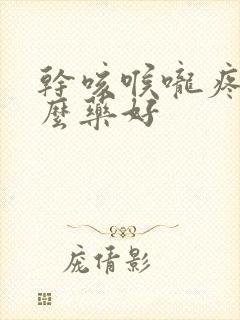 幹咳喉嚨疼
麼藥好
龐倩影